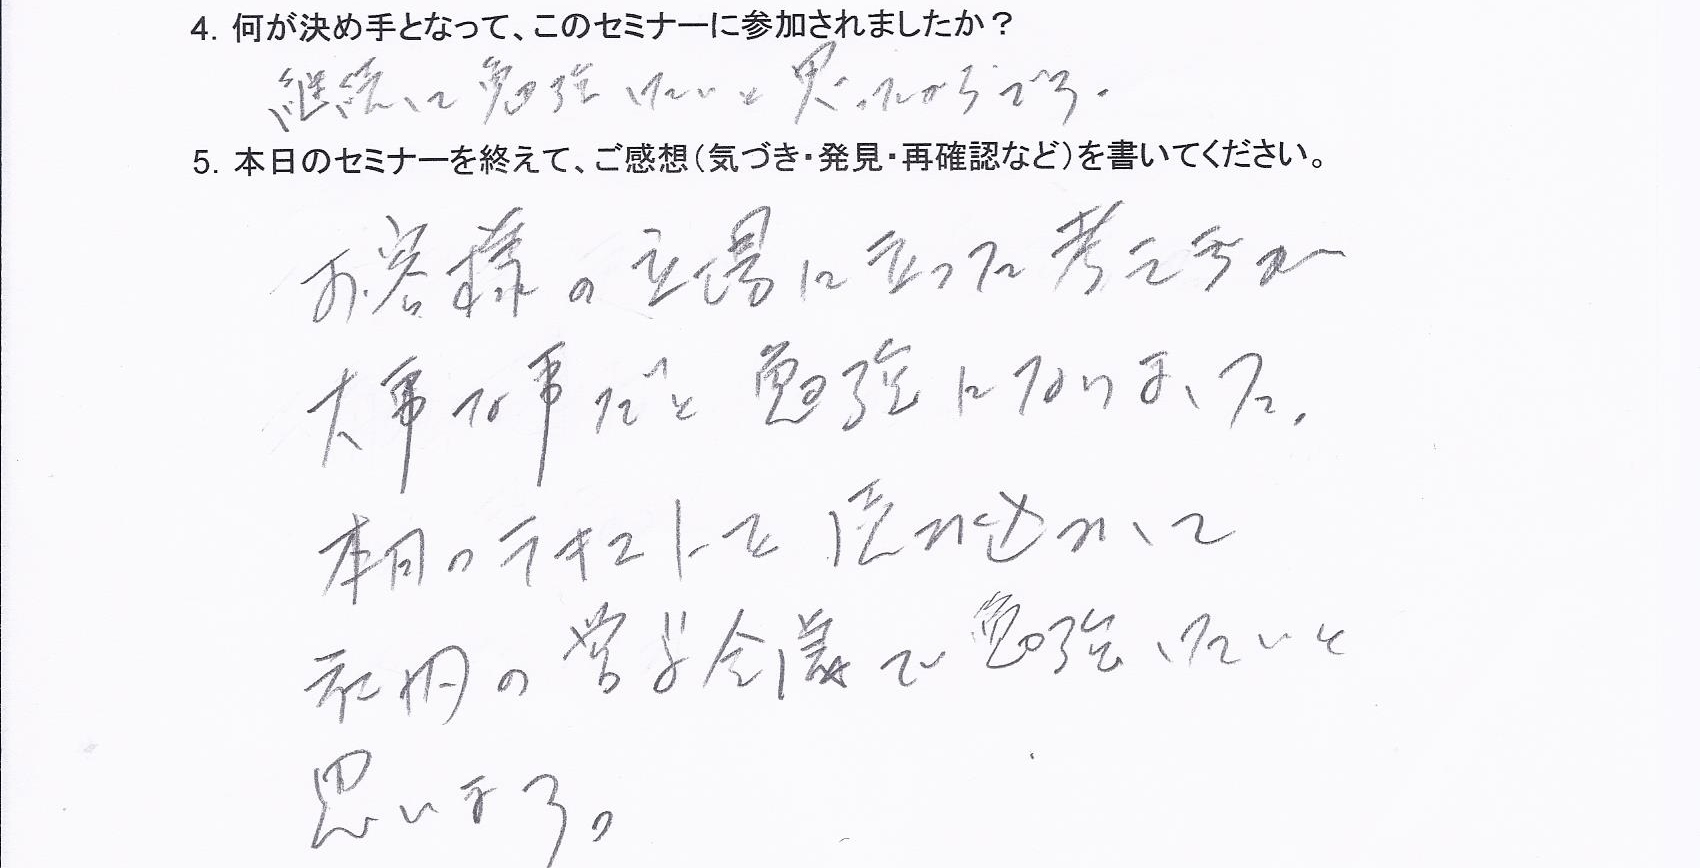 4. 何が決め手となって、このセミナーに参加されましたか？
継続して勉強したいと思ったからです。
5. 本日のセミナーを終えて、ご感想（気づき・発見・再確認など）を書いてください。
お客様の立場に立った考え方が
大事な事だと勉強になりました。
本日のテキストを読み込みして
社内の営業会議で勉強したいと
思います。